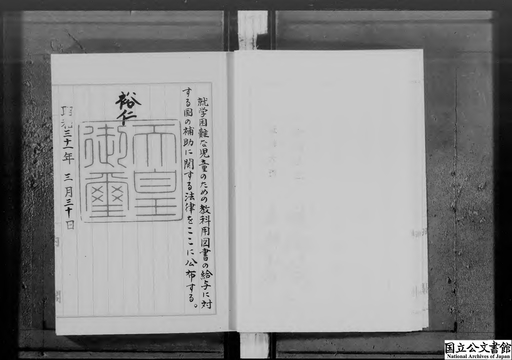 就学困難な児童のための教科用図書の給与に対
する国の補助に関する法律をここに公布する。
裕仁
天皇
御璽
昭和三十一年三月三十日
国立公文書館
National Archives of Japan